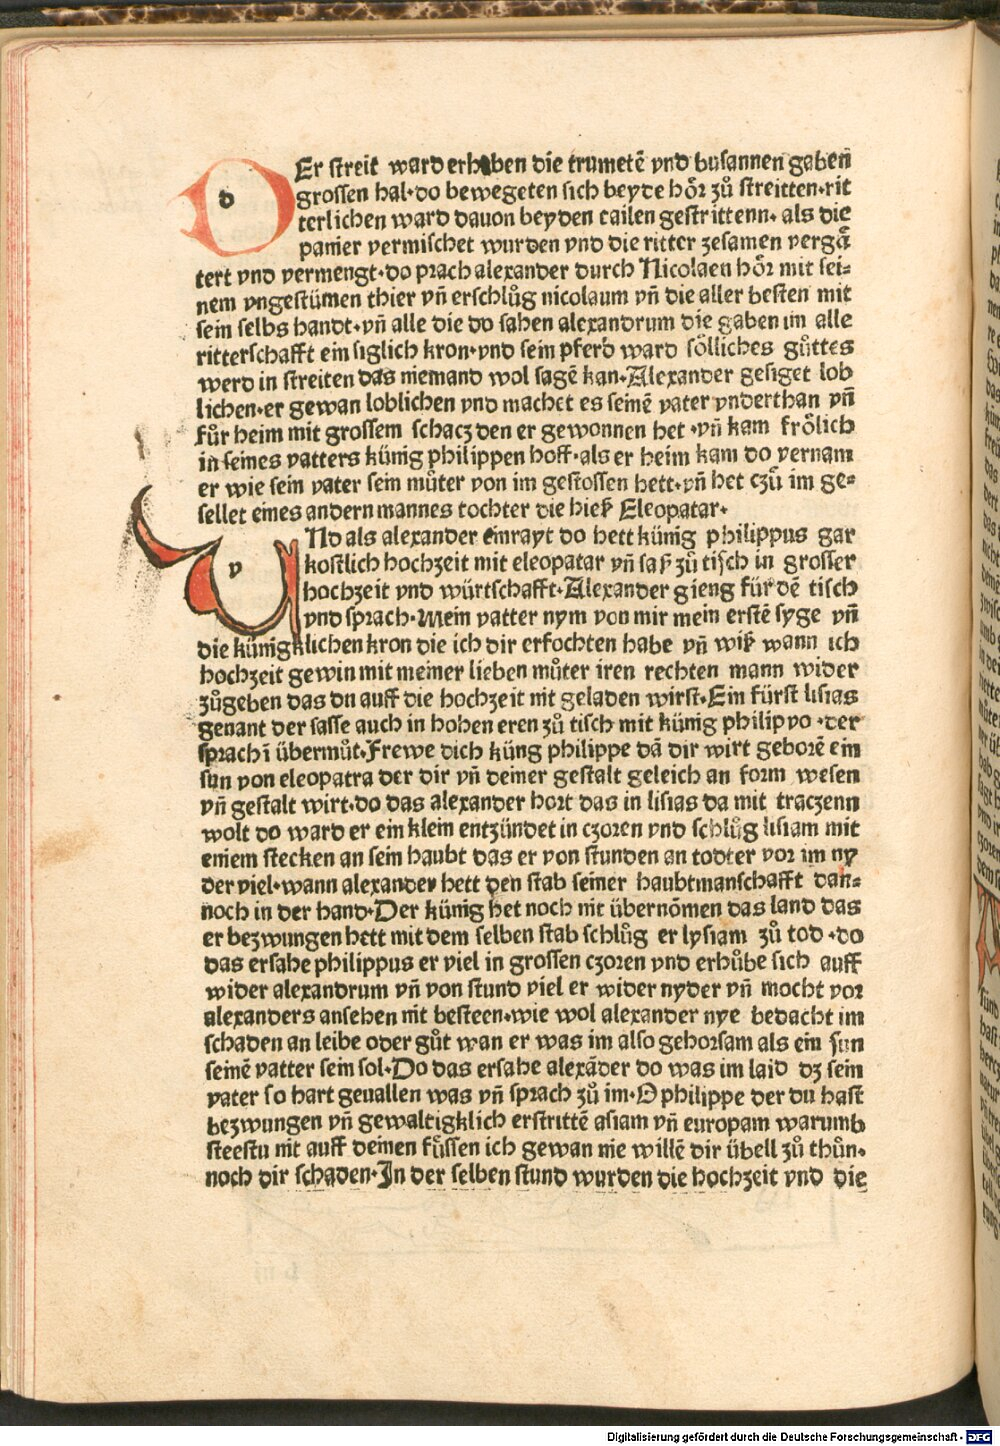 DEr streit ward erhaben die trumetē vnd busannen gaben
grossen hal·do bewegeten sich beyde hoͤr zuͦ streitten·rit
terlichen ward dauon beyden tailen gestrittenn· als die
panier vermischet wurden vnd die ritter zesamen vergā
tert vnd vermengt·do prach alexander durch Nicolaen hoͤr mit sei⸗
nem vngestuͤmen thier vñ erschluͦg nicolaum vñ die aller besten mit
sein selbs handt·vñ alle die do sahen alexandrum die gaben im alle
ritterschafft ein siglich kron·vnd sein pferd ward soͤlliches guͦttes
werd in streiten das niemand wol sagē kan·Alexander gesiget lob
lichen·er gewan loblichen vnd machet es seinē vater vnderthan vñ
fuͦr heim mit grossem schacz den er gewonnen het ·vñ kam froͤlich
in seines vatters kuͤnig philippen hoff·als er heim kam do vernam
er wie sein vater sein muͦter von im gestossen hett·vñ het czuͦ im ge⸗
sellet eines andern mannes tochter die hieß Eleopatar·
VNd als alexander einrayt do hett kuͤnig philippus gar
kostlich hochzeit mit eleopatar vñ saß zuͦ tisch in grosser
hochzeit vnd wuͤrtschafft·Alexander gieng fuͤr dē tisch
vnd sprach·Mein vatter nym von mir mein erstē syge vñ
die kuͤnigklichen kron die ich dir erfochten habe vñ wiß wann ich
hochzeit gewin mit meiner lieben muͦter iren rechten mann wider
zuͦgeben das du auff die hochzeit nit geladen wirst·Ein fuͤrst lisias
genant der sasse auch in hohen eren zuͦ tisch mit kuͤnig philippo ·der
sprach ī uͤbermuͦt·Frewe dich kuͤng philippe dā dir wirt geborē ein
sun von eleopatra der dir vñ deiner gestalt geleich an form wesen
vñ gestalt wirt·do das alexander hort das in lisias da mit traczenn
wolt do ward er ein klein entzuͤndet in czoren vnd schluͦg lisiam mit
einem stecken an sein haubt das er von stunden an todter vor im ny
der viel·wann alexander hett den stab seiner haubtmanschafft dan⸗
noch in der hand·Der kuͤnig het noch nit uͤbernōmen das land das
er bezwungen hett mit dem selben stab schluͦg er lysiam zuͦ tod ·do
das ersahe philippus er viel in grossen czoren vnd erhuͦbe sich auff
wider alexandrum vñ von stund viel er wider nyder vñ mocht vor
alexanders ansehen nit besteen·wie wol alexander nye bedacht im
schaden an leibe oder guͦt wan er was im also gehorsam als ein sun
seinē vatter sein sol·Do das ersahe alexāder do was im laid dz sein
vater so hart geuallen was vñ sprach zuͦ im·O philippe der du hast
bezwungen vñ gewaltigklich erstrittē asiam vñ europam warumb
steestu nit auff deinen fuͤssen ich gewan nie willē dir uͤbell zuͦ thuͦn·
noch dir schaden·In der selben stund wurden die hochzeit vnd die
Digitalisierung gefördert durch die Deutsche Forschungsgemeinschaft - DFG